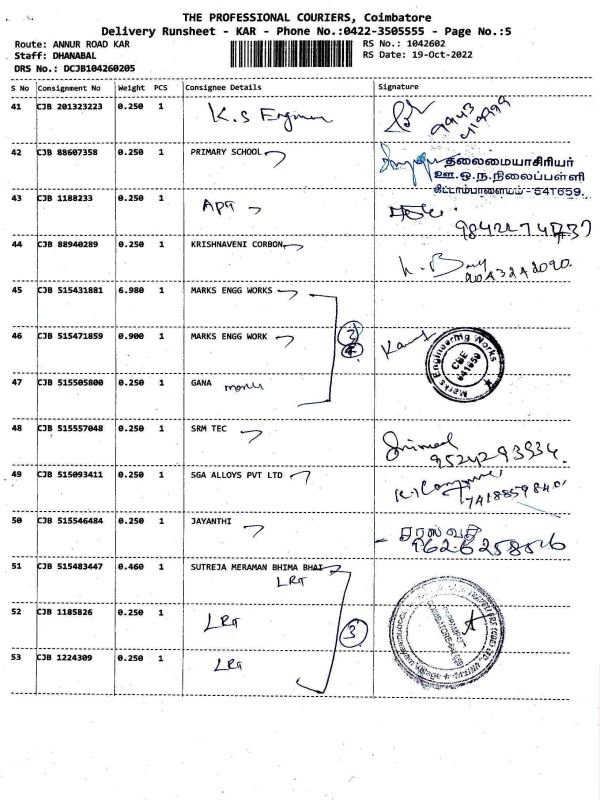 THE PROFESSIONAL COURIERS, Coimbatore
Delivery Runsheet - KAR - Phone No.:0422-3505555 - Page No.:5
Route: ANNUR ROAD KAR
RS No.: 1042602
Staff: DHANABAL
RS Date: 19-Oct-2022
DRS No.: DCJB104260205
S No Consignment No Weight PCS Consignee Details Signature
41 CJB 201323223 0.250 1 K.S
9943
42 CJB 88607358 0.250 1 PRIMARY SCHOOL
தலைமையாசிரியர்
ஊ.ஒ.ந.நிலைப்பள்ளி
கிட்டாம்பாளையம் - 641659.
43 CJB 1188233 0.250 1
44 CJB 88940289 0.250 1 KRISHNAVENI CORBON
45 CJB 515431881 6.980 1 MARKS ENGG WORKS
46 CJB 515471859 0.900 1 MARKS ENGG WORK
Marks Engineering Works
CBE
641659
47 CJB 515505800 0.250 1 GANA
48 CJB 515557048 0.250 1 SRM TEC
9524293934
49 CJB 515093411 0.250 1 SGA ALLOYS PVT LTD
50 CJB 515546484 0.250 1 JAYANTHI
சரஸ்வதி
51 CJB 515483447 0.460 1 SUTREJA MERAMAN BHIMA BHAI
LRT
52 CJB 1185826 0.250 1 LRT
3
53 CJB 1224309 0.250 1 LRT